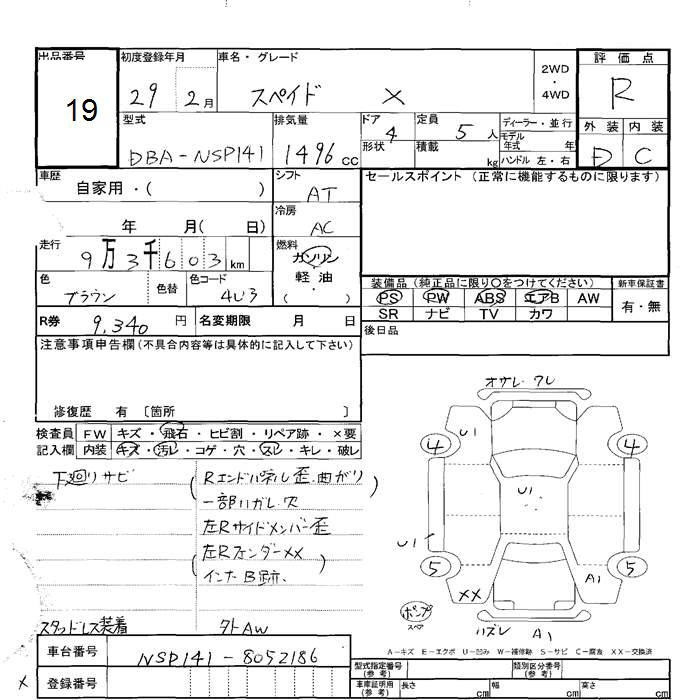 出品番号
19
初度登録年月
29 2月
車名・グレード
スペイド X
2WD
・
4WD
評価点
R
外装 内装
D C
型式
DBA-NSP141
排気量
1496 cc
ドア 4
形状
定員 5 人
積載 kg
ディーラー・並行
モデル
年式 年
ハンドル 左・右
車歴
自家用・( )
年 月( 日)
シフト
AT
冷房
AC
走行
9万3千603 km
燃料
ガソリン
軽油
( ・ )
色
ブラウン
色替
色コード
4U3
R券 9,340 円
名変期限 月 日
セールスポイント (正常に機能するものに限ります)
装備品 (純正品に限り〇をつけてください)
PS PW ABS エアB AW
SR ナビ TV カワ
新車保証書
有・無
後日品
注意事項申告欄 (不具合内容等は具体的に記入して下さい)
修復歴 有 〔箇所 〕
検査員 FW キズ・飛石・ヒビ割・リペア跡・×要
記入欄 内装 キズ・汚レ・コゲ・穴・スレ・キレ・破レ
下廻りサビ
(Rエンドパネル歪.曲がり)
一部ハガレ.穴
左Rサイドメンバー歪
(左RフェンダーXX)
インナB跡.
スタッドレス装着
外AW
オサレ.ワレ
U1
4 4
U1
U1
5 5
XX A1
ポンプ
スペア
ハズレ A1
A-キズ E-エクボ U-凹み W-補修跡 S-サビ C-腐食 XX-交換済
車台番号 NSP141-8052186
X
登録番号
型式指定番号
(参考)
類別区分番号
(参考)
車庫証明用
(参考)
長さ cm
幅 cm
高さ cm